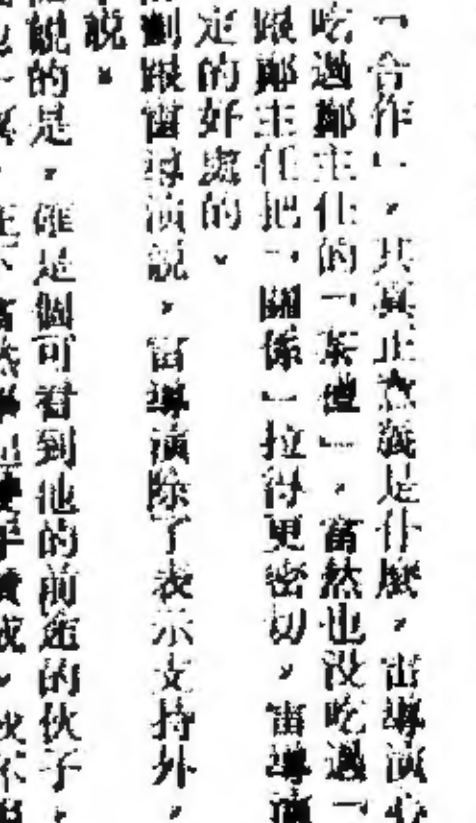 「合作」,其真正意義是什麼,雷導演心
吃過鄭主任的「茶禮」,當然也没吃過「
跟鄭主任把「關係」拉得更密切,雷導演
定的好處的。
劃跟雷導演説,雷導演除了表示支持外,
説。
説的是,確是個可看到他的前途的伙子,